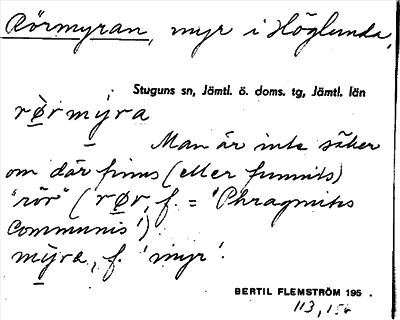 Rörmyran, myr i Höglunda,
Stuguns sn, Jämtl. ö. doms. tg, Jämtl. län
rø̀r mỳra
Man är inte säker
om där finns (eller funnits)
"rör" (rør, f. = 'Phragmites
communis')
mỳra, f. 'myr'.
BERTIL FLEMSTRÖM 195 .
113, 156